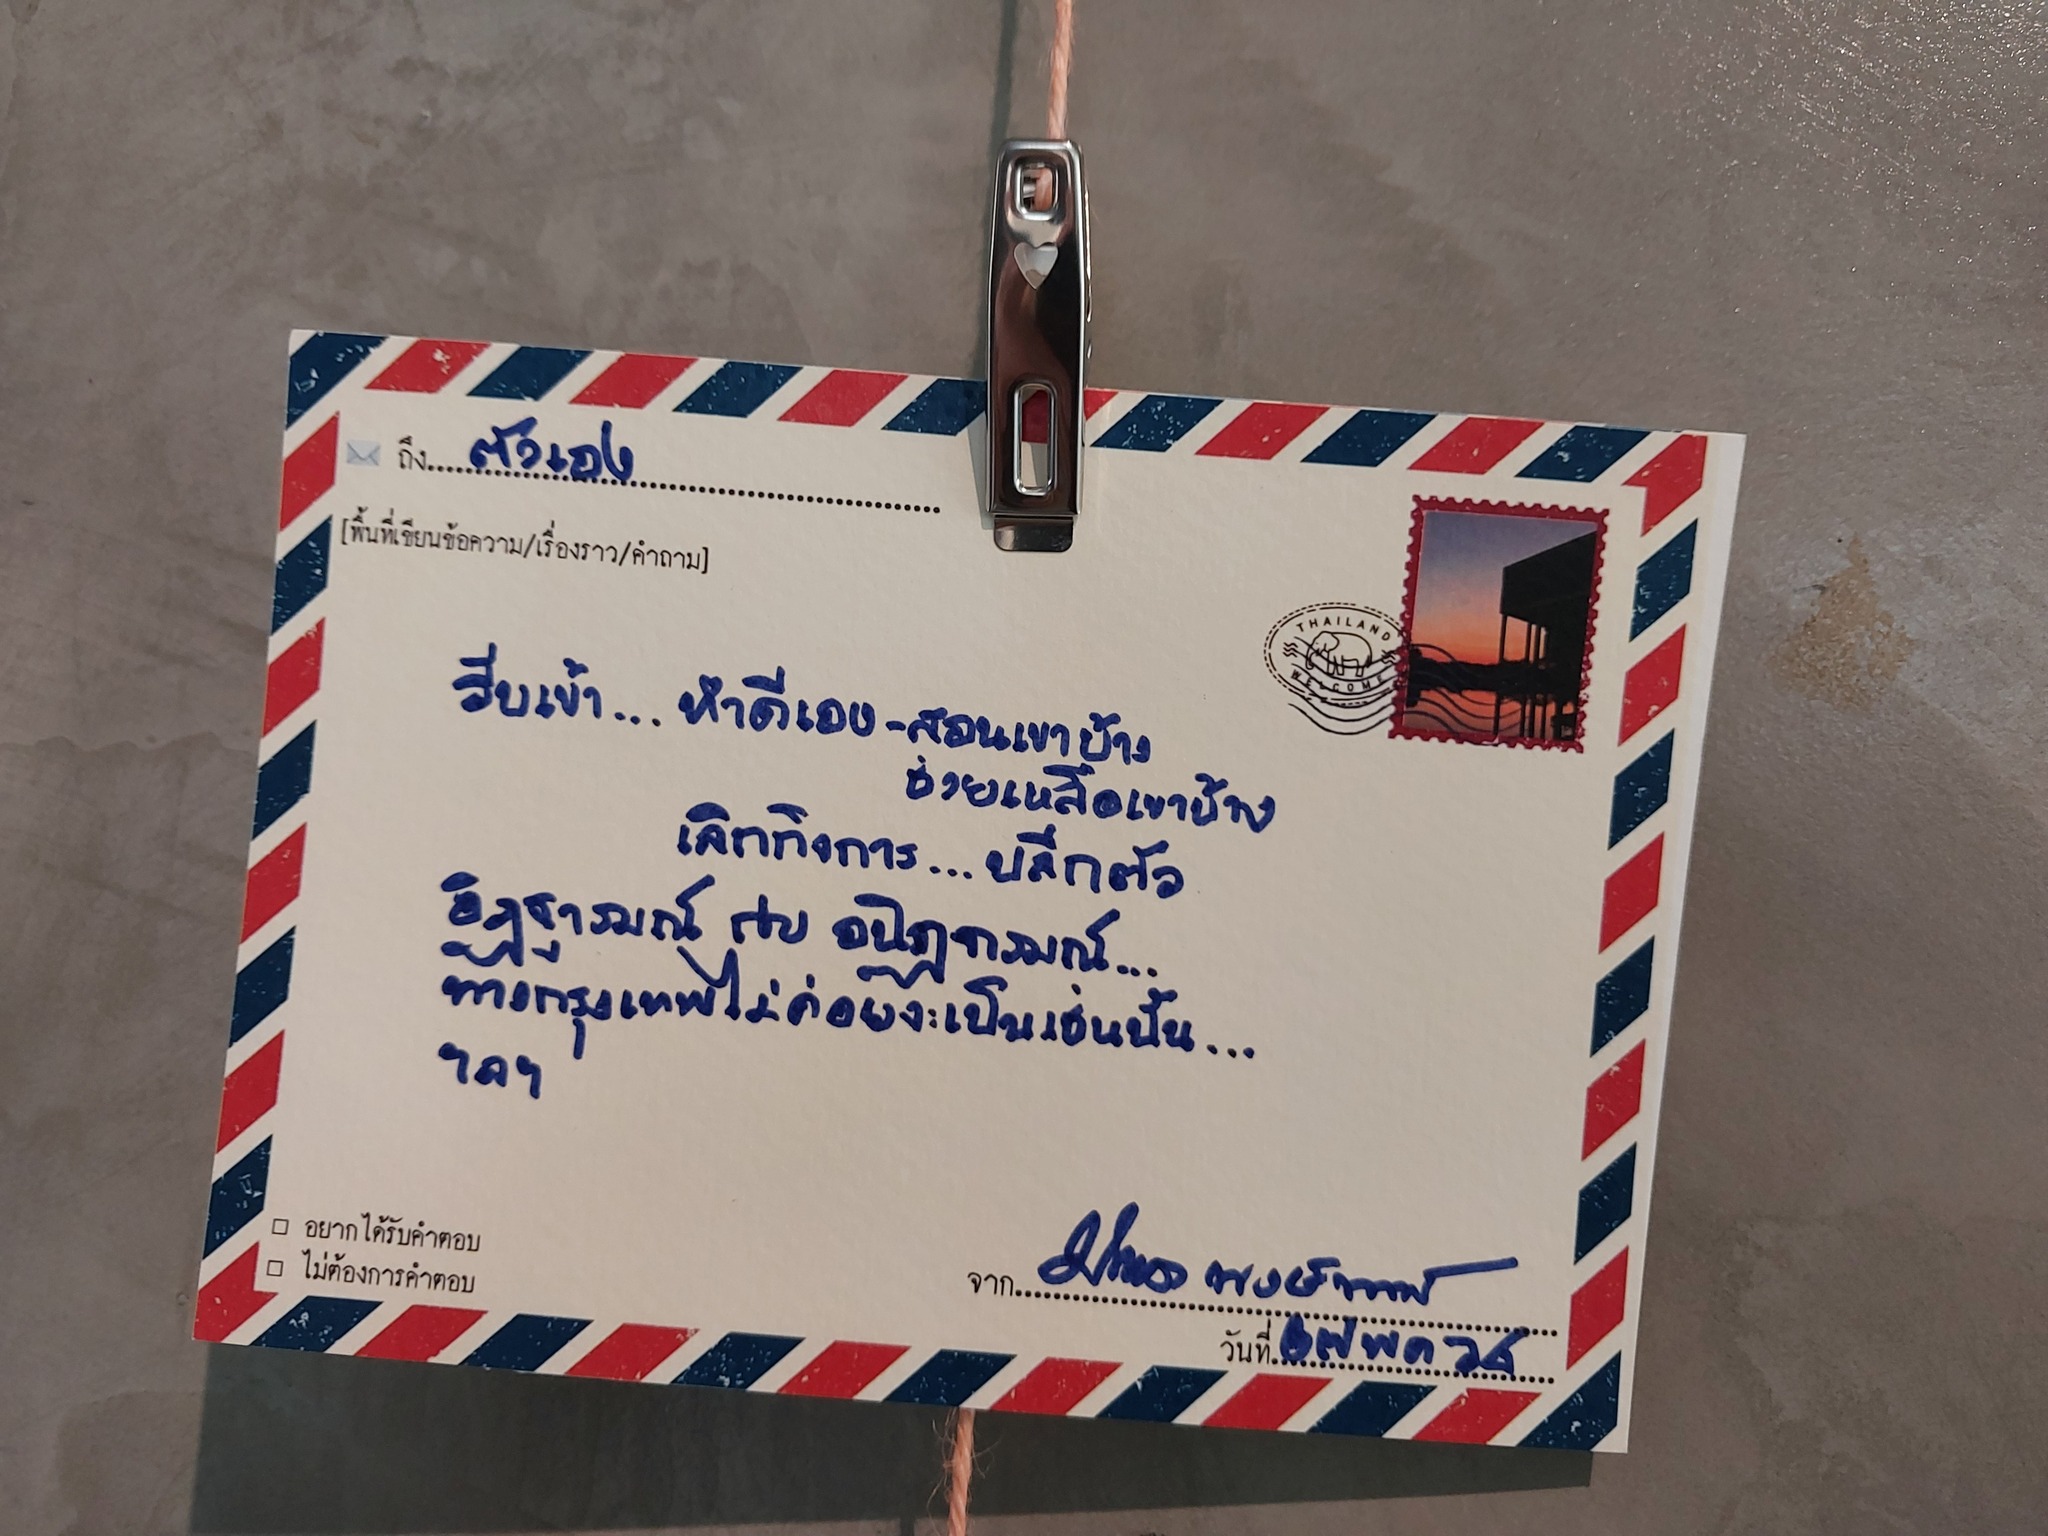 ถึง ตัวเอง
[พื้นที่เขียนข้อความ/เรื่องราว/คำถาม]
THAILAND
WELCOME
รีบเข้า... ทำดีเอง - สอนเขาบ้าง
ช่วยเหลือเขาบ้าง
เลิกทิ้งการ... ปลีกตัว
อิฏฐารมณ์ กับ อนิฏฐารมณ์...
ทางกรุงเทพไม่ค่อยจะเป็นเช่นนั้น...
ฯลฯ
อยากได้รับคำตอบ
ไม่ต้องการคำตอบ
จาก
วันที่